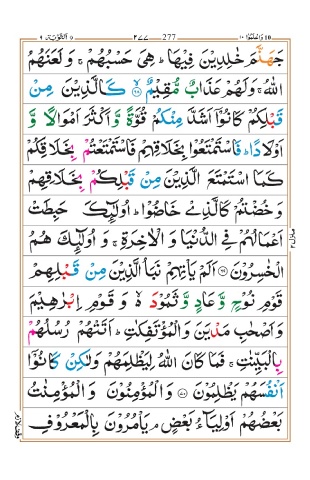 التوبة ٩ ٢٧٧ 277 واعلموا ١٠
جَهَنَّمَ خٰلِدِيْنَ فِيْهَا ؕ هِيَ حَسْبُهُمْ ۚ وَ لَعَنَهُمُ
اللّٰهُ ۚ وَلَهُمْ عَذَابٌ مُّقِيْمٌ ۙ﴿۶۸﴾ كَالَّذِيْنَ مِنْ
قَبْلِكُمْ كَانُوْۤا اَشَدَّ مِنْكُمْ قُوَّةً وَّ اَكْثَرَ اَمْوَالًا وَّ
اَوْلَادًا ؕ فَاسْتَمْتَعُوْا بِخَلَاقِهِمْ فَاسْتَمْتَعْتُمْ بِخَلَاقِكُمْ
كَمَا اسْتَمْتَعَ الَّذِيْنَ مِنْ قَبْلِكُمْ بِخَلَاقِهِمْ
وَ خُضْتُمْ كَالَّذِيْ خَاضُوْا ؕ اُولٰٓئِكَ حَبِطَتْ
اَعْمَالُهُمْ فِي الدُّنْيَا وَ الْاٰخِرَةِ ۚ وَ اُولٰٓئِكَ هُمُ
الْخٰسِرُوْنَ ﴿۶۹﴾ اَلَمْ يَاْتِهِمْ نَبَاُ الَّذِيْنَ مِنْ قَبْلِهِمْ
قَوْمِ نُوْحٍ وَّ عَادٍ وَّ ثَمُوْدَ ۙ۬ وَ قَوْمِ اِبْرٰهِيْمَ
وَ اَصْحٰبِ مَدْيَنَ وَ الْمُؤْتَفِكٰتِ ؕ اَتَتْهُمْ رُسُلُهُمْ
بِالْبَيِّنٰتِ ۚ فَمَا كَانَ اللّٰهُ لِيَظْلِمَهُمْ وَلٰكِنْ كَانُوْۤا
اَنْفُسَهُمْ يَظْلِمُوْنَ ﴿۷۰﴾ وَ الْمُؤْمِنُوْنَ وَ الْمُؤْمِنٰتُ
بَعْضُهُمْ اَوْلِيَآءُ بَعْضٍ ۘ يَاْمُرُوْنَ بِالْمَعْرُوْفِ